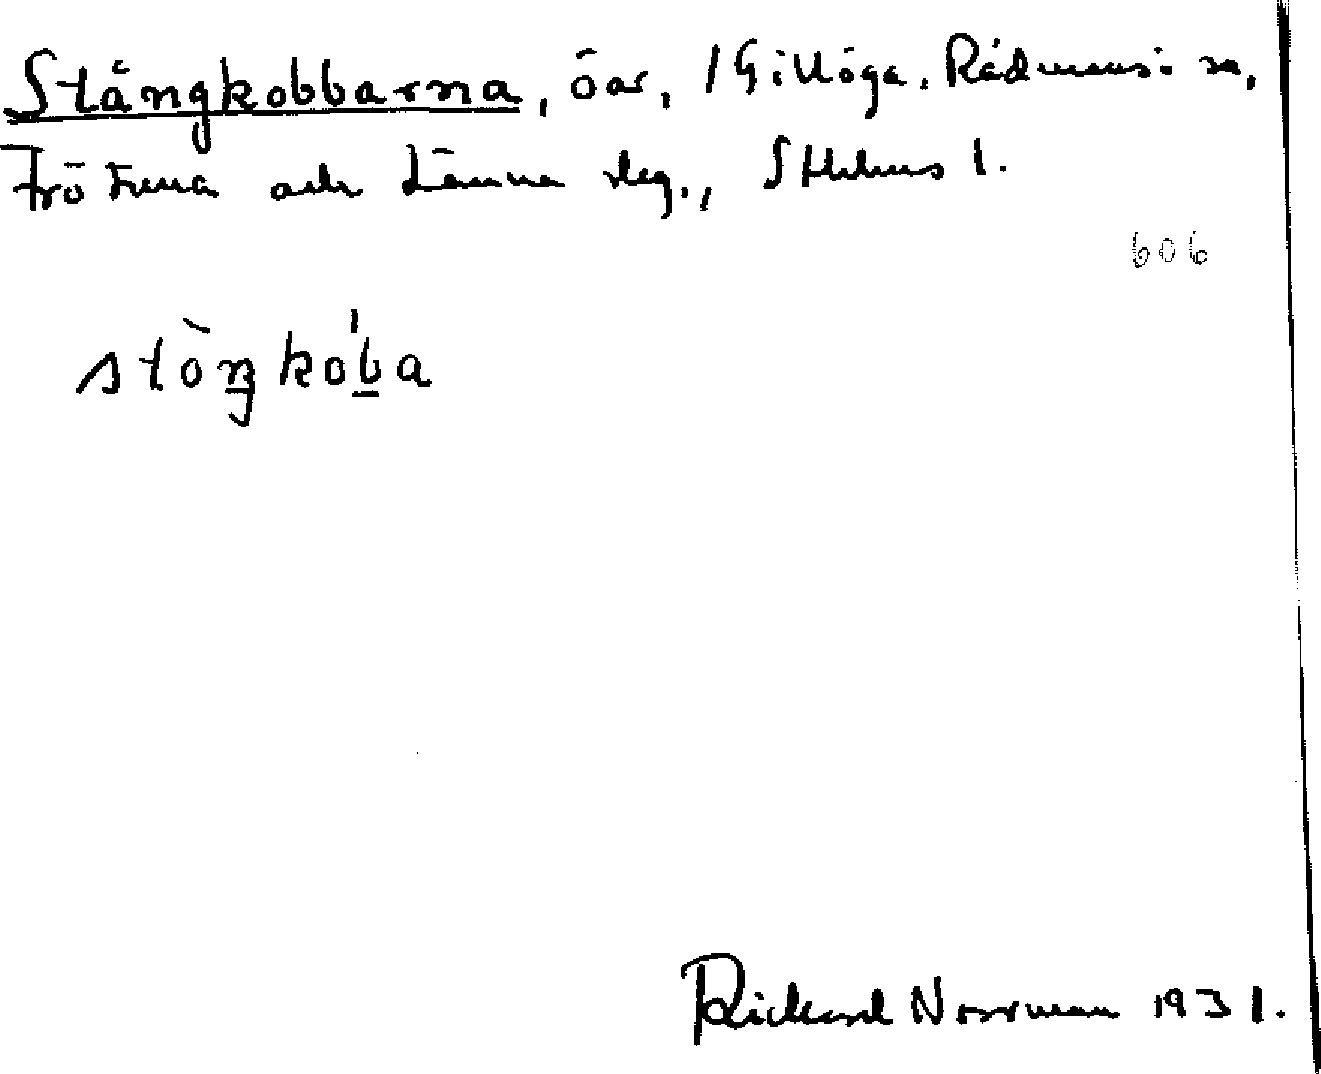 Stångkobbarna, öar, i Gillöga. Rådmansö sn,
Frötuna och Länna skg., Sthlms l.
606
stòŋkób̲a
Rickard Norrman 1931.